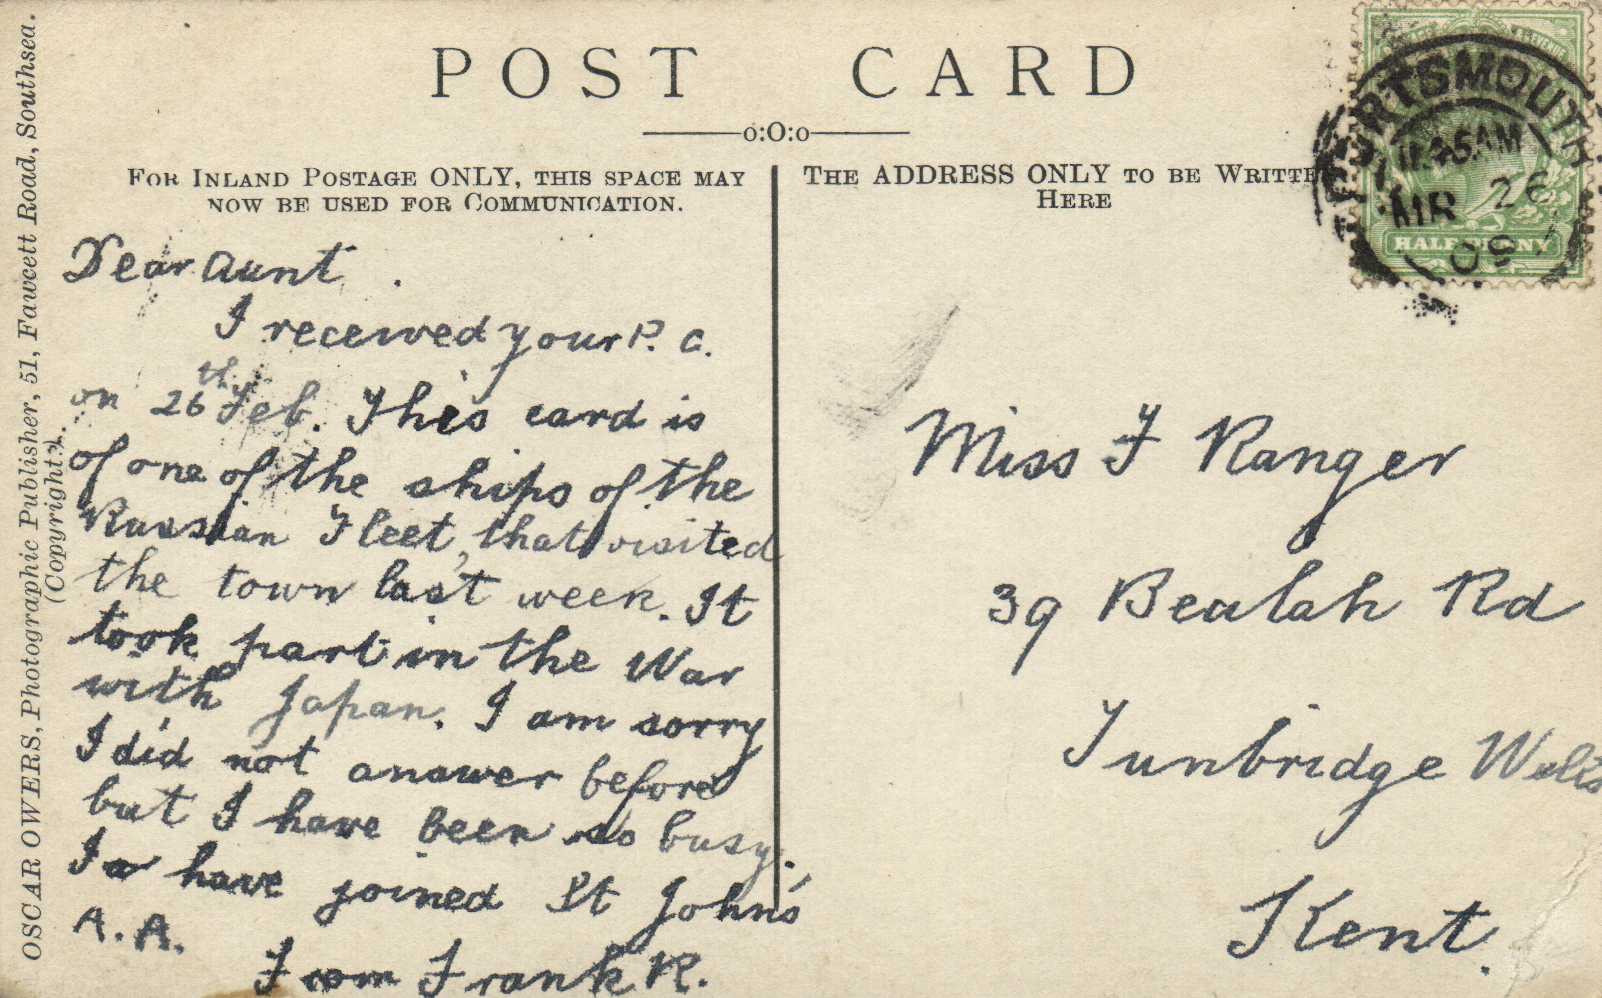 POST CARD
o:O:o
FOR INLAND POSTAGE ONLY, THIS SPACE MAY
NOW BE USED FOR COMMUNICATION.
THE ADDRESS ONLY TO BE WRITTEN
HERE
OSCAR OWERS, Photographic Publisher, 51, Fawcett Road, Southsea.
(Copyright).
Dear Aunt.
I received your P. C.
on 26th Feb. This card is
of one of the ships of the
Russian Fleet, that visited
the town last week. It
took part in the War
with Japan. I am sorry
I did not answer before
but I have been so busy.
I have joined St John's
A. A.
From Frank R.
Miss F Ranger
39 Bealah Rd
Tunbridge Wells
Kent.
PORTSMOUTH
AM
MR 26
HALFPENNY